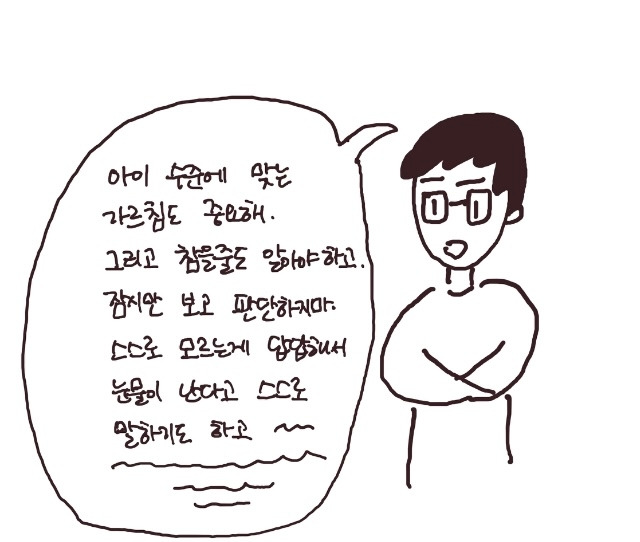 아이 수준에 맞는
가르침도 중요해.
그리고 참을줄도 알아야하고.
잠지만 보고 판단하지마.
스스로 모르는게 답답해서
눈물이 난다고 스스로
말하기도 하고